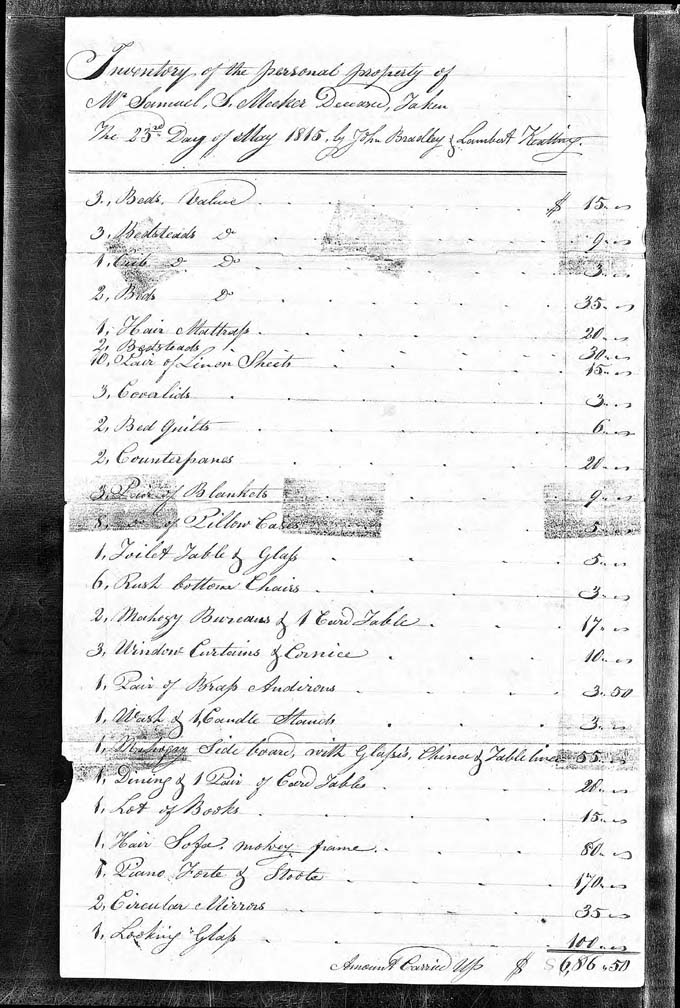 Inventory of the personal property of
Mr. Samuel, S. Meeker Deceased, Taken
The 23rd Day of May 1815, by John Bradley & Lambert Keatting.
3, Beds. Value $ 15.
3, Bedsteads Do 9.
1, Crib Do Do 3.
2, Beds Do 35.
1, Hair Mattrass. 20.
2, Bedsteads 30.
10, Pair of Linen Sheets 15.
3, Coverlids 3.
2, Bed Quilts 6.
2, Counterpanes 20.
3, Pair of Blankets 9.
8, Do of Pillow Cases 5.
1, Toilet Table & Glass 5.
6, Rush bottom Chairs 3.
2, Mahogy Bureaus & 1 Card Table 17.
3, Window Curtains & Cornice 10.
1, Pair of Brass Andirons 3.50
1, Wash & 1, Candle Stands 3.
1, Mahogay Side board, with Glasses, China & Table linen 55.
1, Dining & 1 Pair of Card Tables 20.
1, Lot of Books 15.
1, Hair Sofa. mohey. frame. 80.
1, Piano Forte & Stoole 170.
2, Circular Mirrors 35.
1, Looking Glass 100.
Amount Carried Up $ 686.50